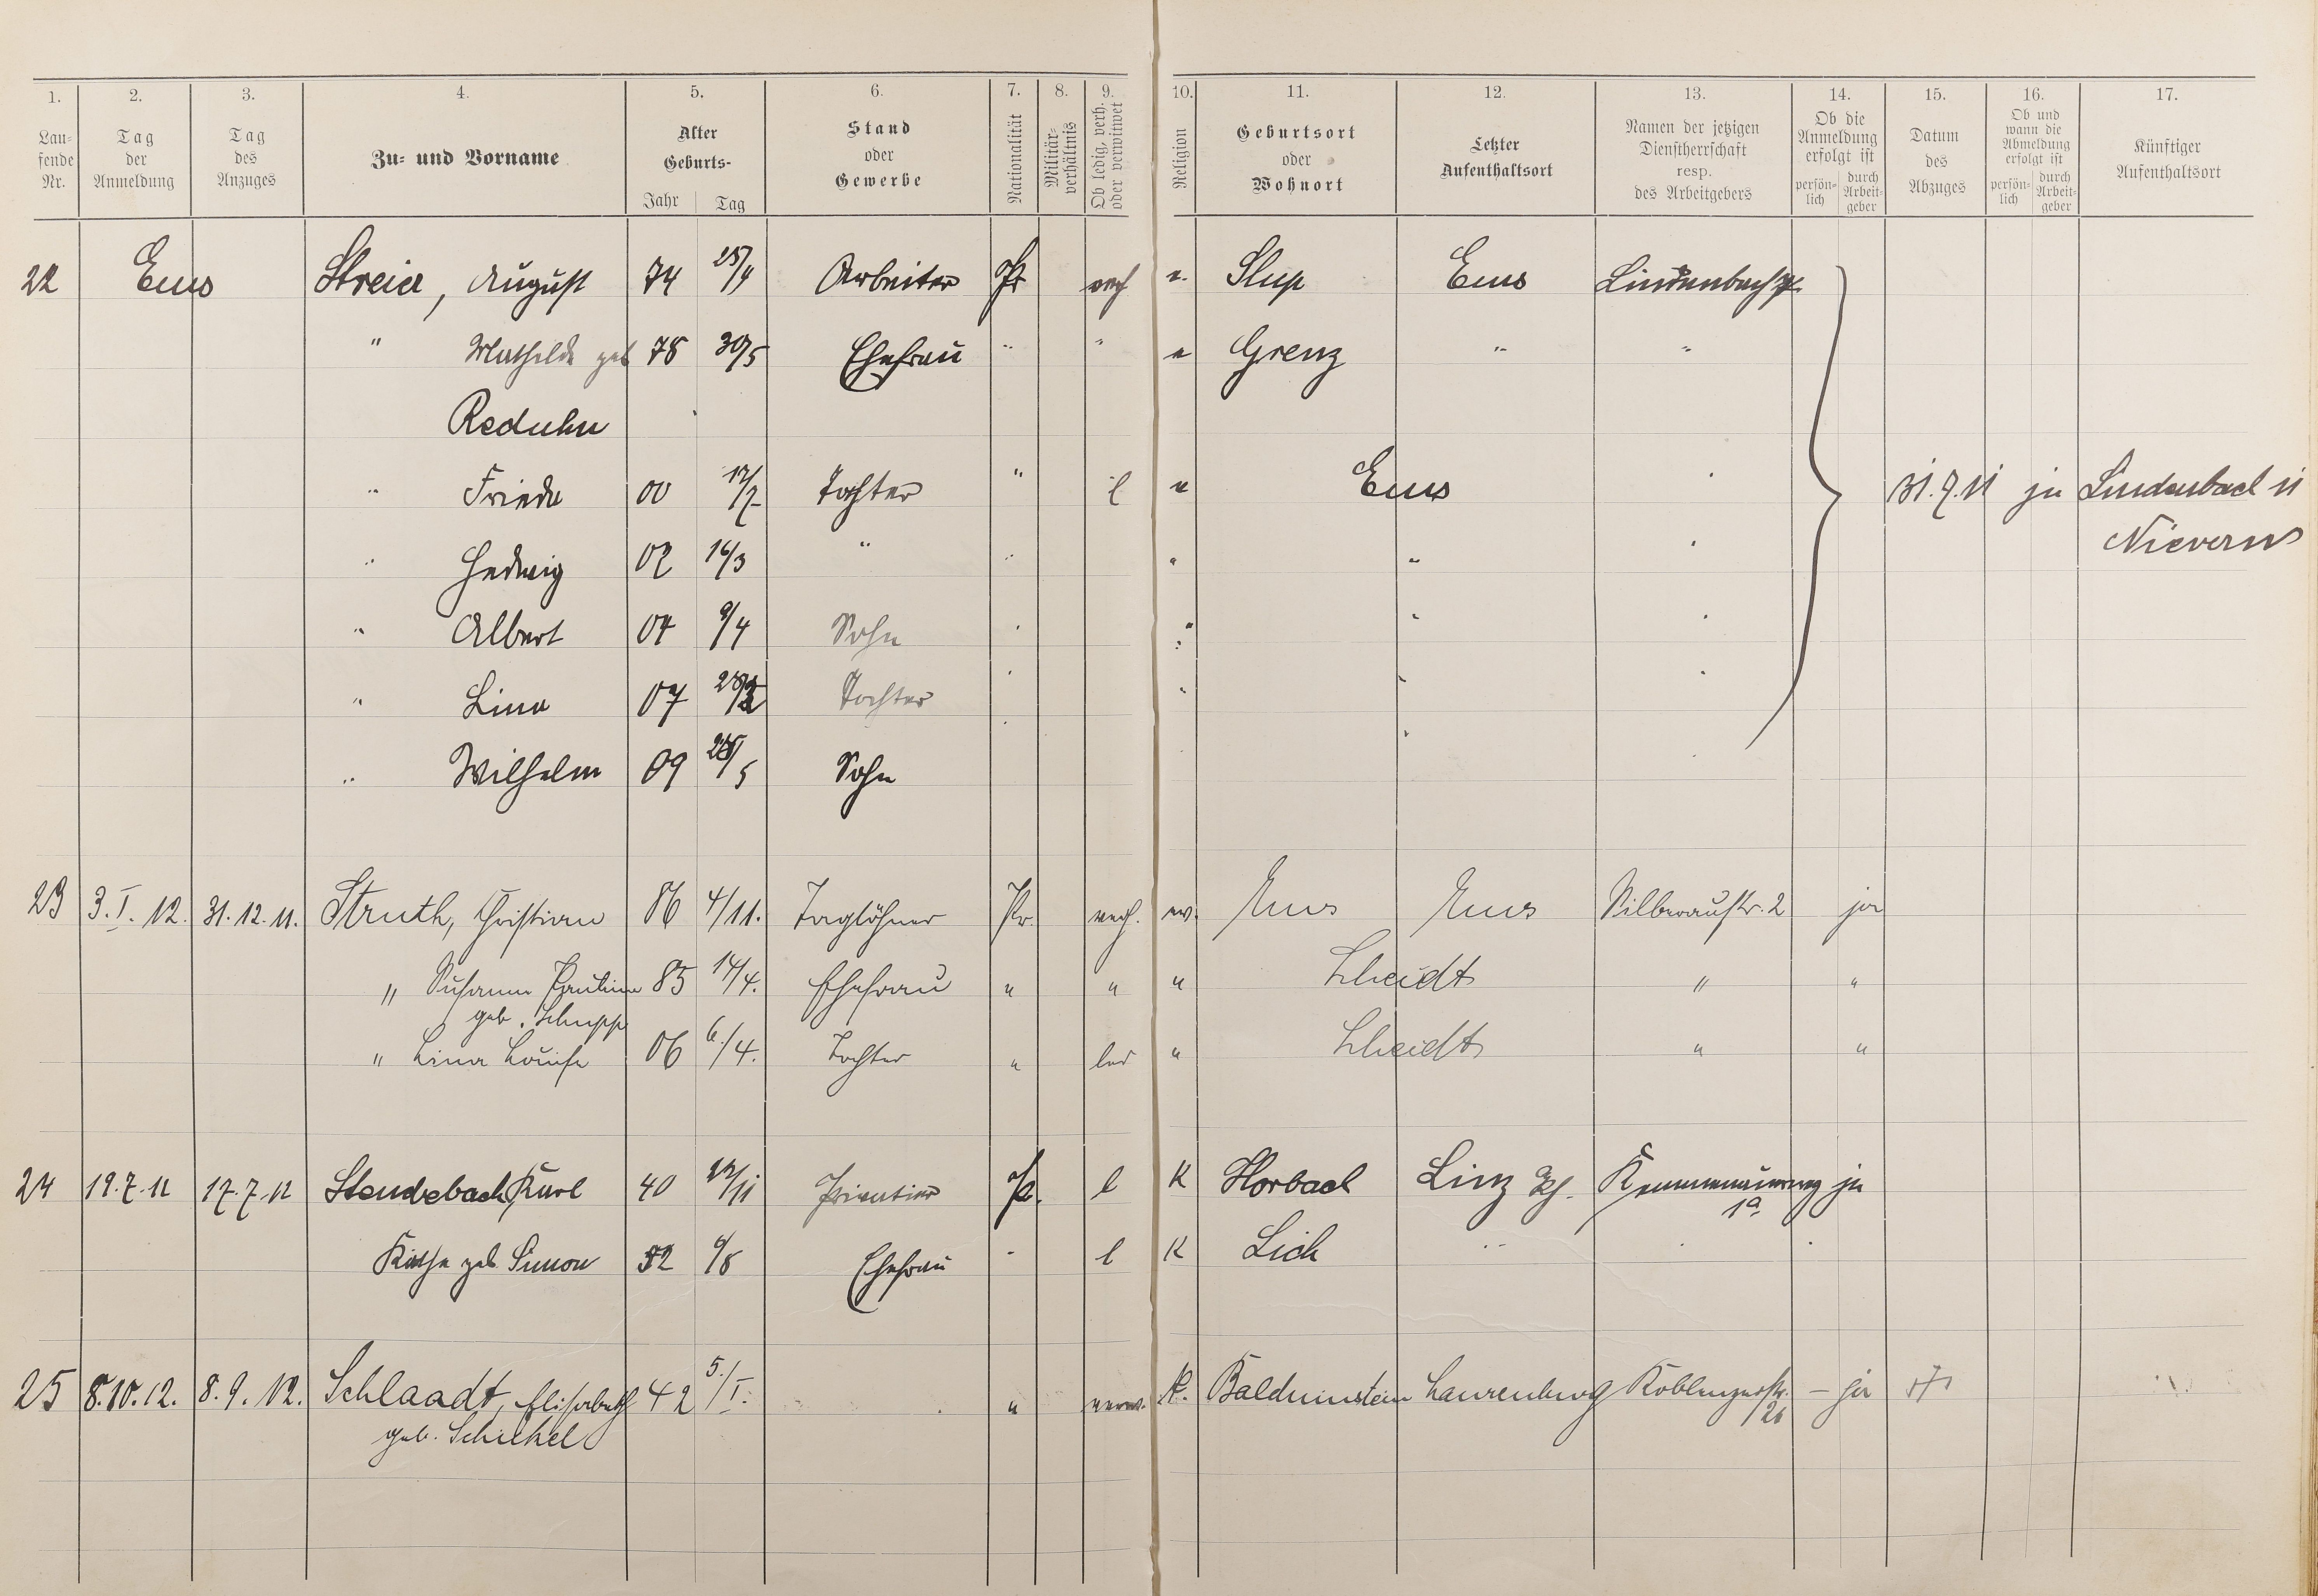 1. 2. 3. 4. 5. 6. 7. 8. 9. 10. 11. 12. 13. 14. 15. 16. 17.
Lau-fende Nr. Tag der Anmeldung Tag des Anzuges Zu- und Vorname Alter Geburts- Jahr Tag Stand oder Gewerbe Nationalität Militär-verhältnis Ob ledig, verh. oder verwitwet Religion Geburtsort oder Wohnort Letzter Aufenthaltsort Namen der jetzigen Dienstherrschaft resp. des Arbeitgebers Ob die Anmeldung erfolgt ist persön-lich durch Arbeit-geber Datum des Abzuges Ob und wann die Abmeldung erfolgt ist persön-lich durch Arbeit-geber Künftiger Aufenthaltsort
22 Ems Streier, August 74 25/4 Arbeiter Pr verh e. Slup Ems Lindenbach
" Mathilde geb 78 30/5 Ehefrau " " e Grenz " "
Reduhn
" Frieda 00 17/2 Tochter " l e Ems " 31.7.11 ja Lindenbach
Nievern
" Hedwig 02 16/3 " " " " "
" Albert 04 9/4 Sohn " " " "
" Lina 07 Tochter " " " "
" Wilhelm 09 Sohn
23 3.I.12. 31.12.11. Struth, Christian 86 4/11. Taglöhner Pr. verh. ev. Ems Ems Silberaustr. 2 ja
" Susanna Pauline 85 14/4. Ehefrau " " " Scheidt " "
geb. Schupp
" Lina Louise 06 6./4. Tochter " led " Scheidt " "
24 19.7.12 17.7.12 Stendebach, Karl 40 Privatier Pr. l K Horbach Linz Rh. Kemmenauerweg ja
1a.
Käthe geb. Simon 52 6/8 Ehefrau " l K Lich " " "
25 8.10.12. 8.9.12. Schlaadt, Elisabeth 42 5./I. " verw. K. Balduinstein Laurenburg Koblenzerstr. – ja
26
geb. Schickel